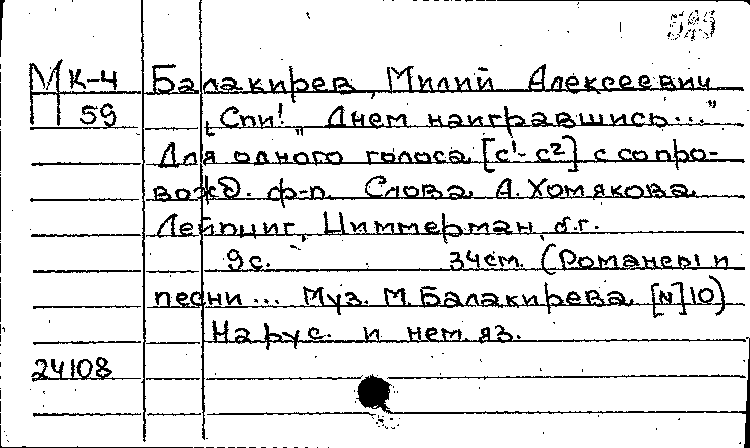 МК-4 Балакирев, Милий Алексеевич
П 59 "Спи!" Днем наигравшись..."
Для одного голоса [с¹-с²] с сопро-
вожд. ф-п. Слова А. Хомякова.
Лейпциг, Циммерман, б.г.
9с. 34см. (Романсы и
песни... Муз. М. Балакирева. [№]10)
На рус. и нем. яз.
24108